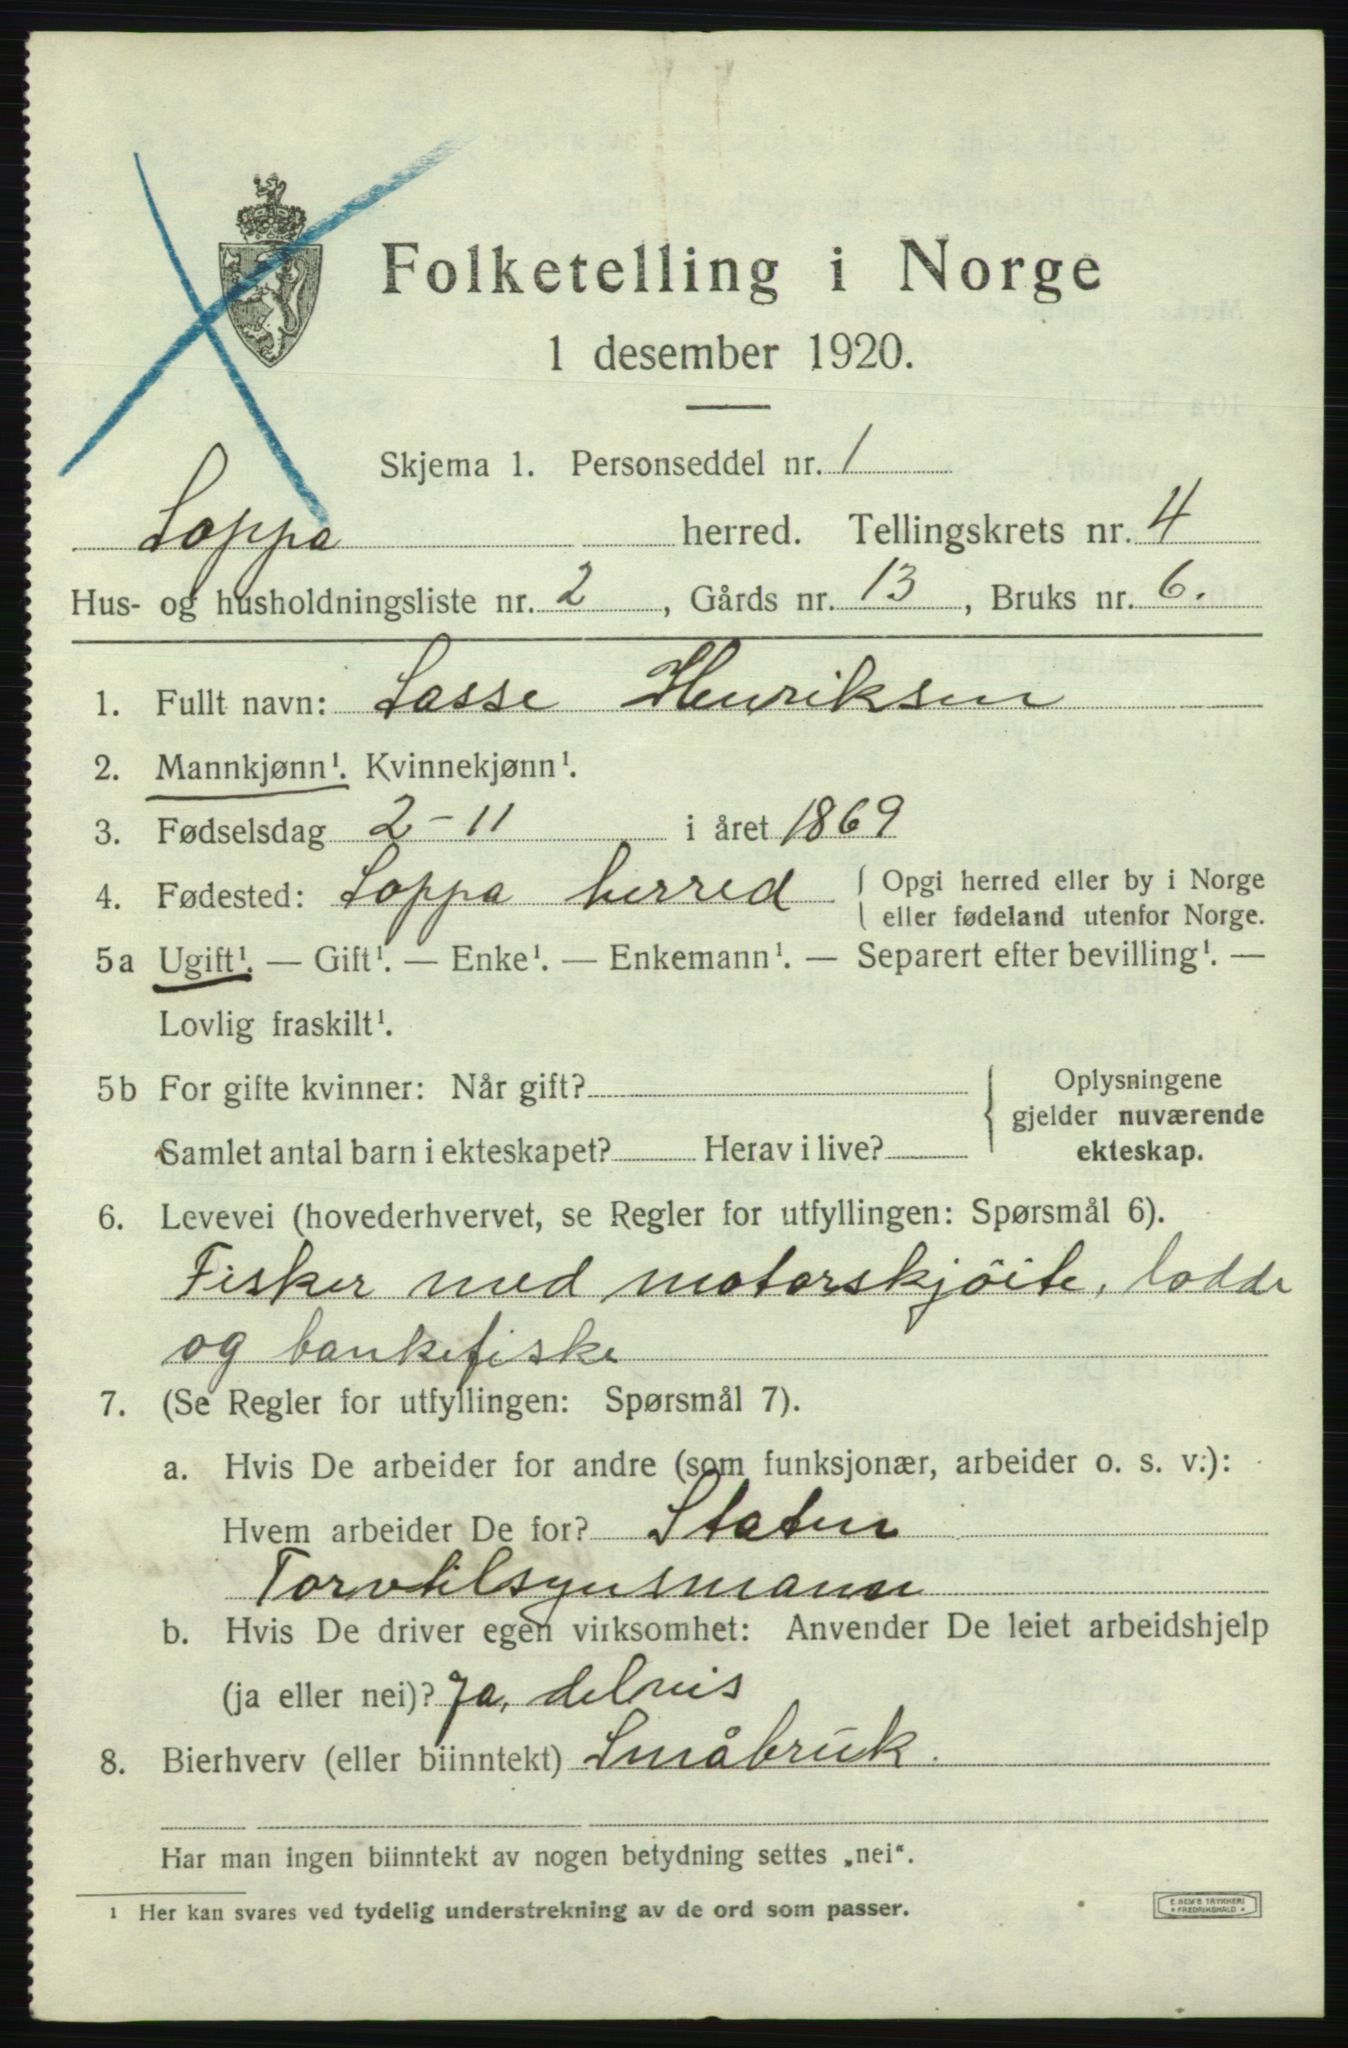 Folketelling i Norge
1 desember 1920.
Skjema 1. Personseddel nr. 1
Loppa herred. Tellingskrets nr. 4
Hus- og husholdningsliste nr. 2, Gårds nr. 13, Bruks nr. 6.
1. Fullt navn: Lasse Henriksen
2. Mannkjønn¹. Kvinnekjønn¹.
3. Fødselsdag 2-11 i året 1869
4. Fødested: Loppa herred { Opgi herred eller by i Norge
eller fødeland utenfor Norge.
5a Ugift¹. — Gift¹. — Enke¹. — Enkemann¹. — Separert efter bevilling¹. —
Lovlig fraskilt¹.
5b For gifte kvinner: Når gift?
Samlet antal barn i ekteskapet? Herav i live?
{ Oplysningene
gjelder nuværende
ekteskap.
6. Levevei (hovederhvervet, se Regler for utfyllingen: Spørsmål 6).
Fisker med motorskjöite, lodde
og bankefiske
7. (Se Regler for utfyllingen: Spørsmål 7).
a. Hvis De arbeider for andre (som funksjonær, arbeider o. s. v.):
Hvem arbeider De for? Staten
Torvtilsynsmann
b. Hvis De driver egen virksomhet: Anvender De leiet arbeidshjelp
(ja eller nei)? Ja, delvis
8. Bierhverv (eller biinntekt) Småbruk.
Har man ingen biinntekt av nogen betydning settes „nei“.
¹ Her kan svares ved tydelig understrekning av de ord som passer.
E. SEM'S TRYKKERI
* FREDRIKSHALD *